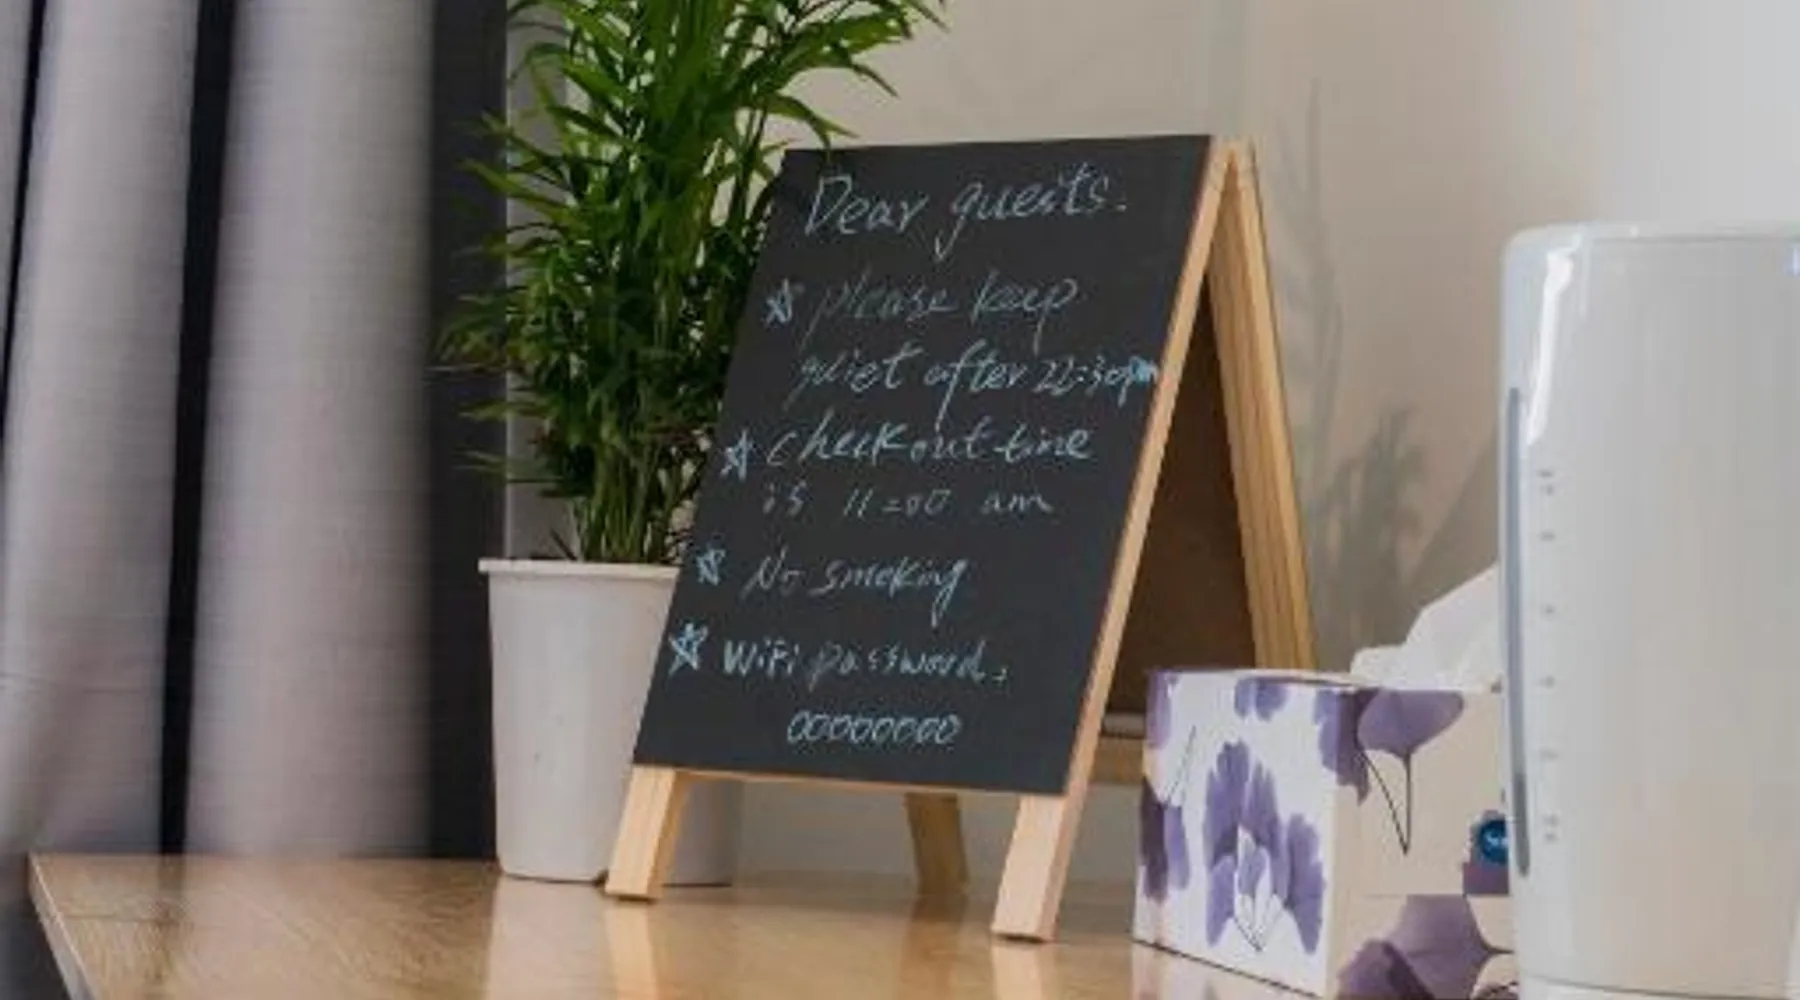 Dear guests.
☆ please keep
quiet after 22:30pm
☆ check out time
is 11:00 am
☆ No smoking
☆ WiFi password:
00000000